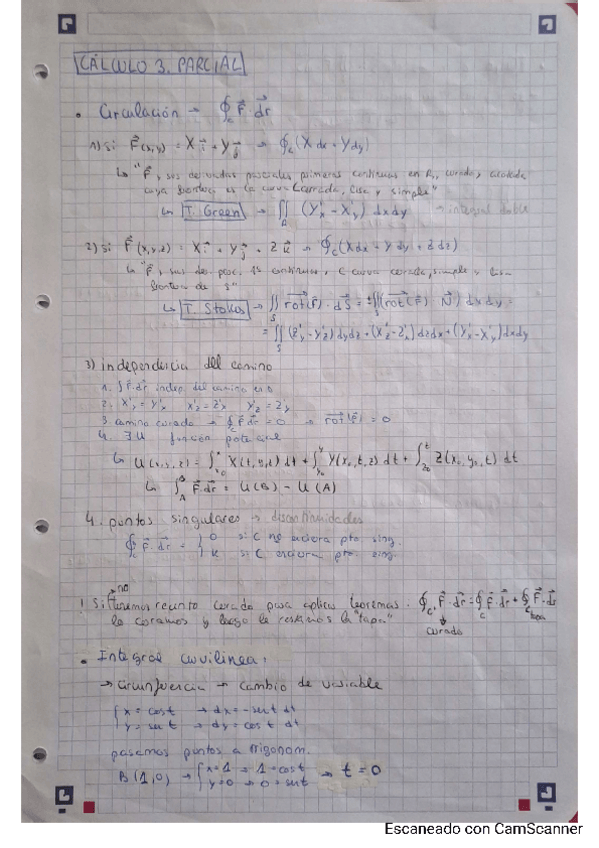 CÁLCULO 3. PARCIAL
• Circulación → ∮c F⃗·dr⃗
1) si F⃗(x,y) = X i⃗ + Y j⃗ → ∮c (X dx + Y dy)
↳ "F⃗ y sus derivadas parciales primeras continuas en R, cerrado, acotado cuya frontera es la curva C cerrada, lisa y simple"
↳ T. Green → ∬A (Y'x - X'y) dx dy → integral doble
2) si F⃗(x,y,z) = X i⃗ + Y j⃗ + Z k⃗ → ∮c (X dx + Y dy + Z dz)
↳ "F⃗ y sus der. parc. 1ªs continuas, C curva cerrada, simple y lisa
frontera de S"
↳ T. Stokes → ∬S rot(F⃗)·dS⃗ = ±∬(rot(F⃗) N⃗) dx dy =
= ∬S (Z'y - Y'z) dy dz + (X'z - Z'x) dz dx + (Y'x - X'y) dx dy
3) independencia del camino
1. ∫F⃗·dr⃗ indep. del camino en D
2. X'y = Y'x X'z = Z'x Y'z = Z'y
3. camino cerrado → ∮c F⃗·dr⃗ = 0 → rot(F⃗) = 0
4. ∃ U función potencial
↳ U(x,y,z) = ∫x0^x X(t,y,z) dt + ∫y0^y Y(x0,t,z) dt + ∫z0^z Z(x0,y0,t) dt
↳ ∫A^B F⃗·dr⃗ = U(B) - U(A)
4. puntos singulares → discontinuidades
∮c F⃗·dr⃗ = { 0 si C no encierra pto. sing.
k si C encierra pto. sing.
→ no
! Si tenemos recinto cerrado para aplicar teoremas. ∮c1 F⃗·dr⃗ = ∮c F⃗·dr⃗ + ∮c tapa F⃗·dr⃗
lo cerramos y luego le restamos la "tapa" cerrado
• Integral curvilínea:
→ circunferencia → cambio de variable
{ x = cos t → dx = -sen t dt
y = sen t → dy = cos t dt
pasamos puntos a trigonom.
B (1,0) → { x=1 → 1 = cos t → t = 0
y=0 → 0 = sen t
Escaneado con CamScanner